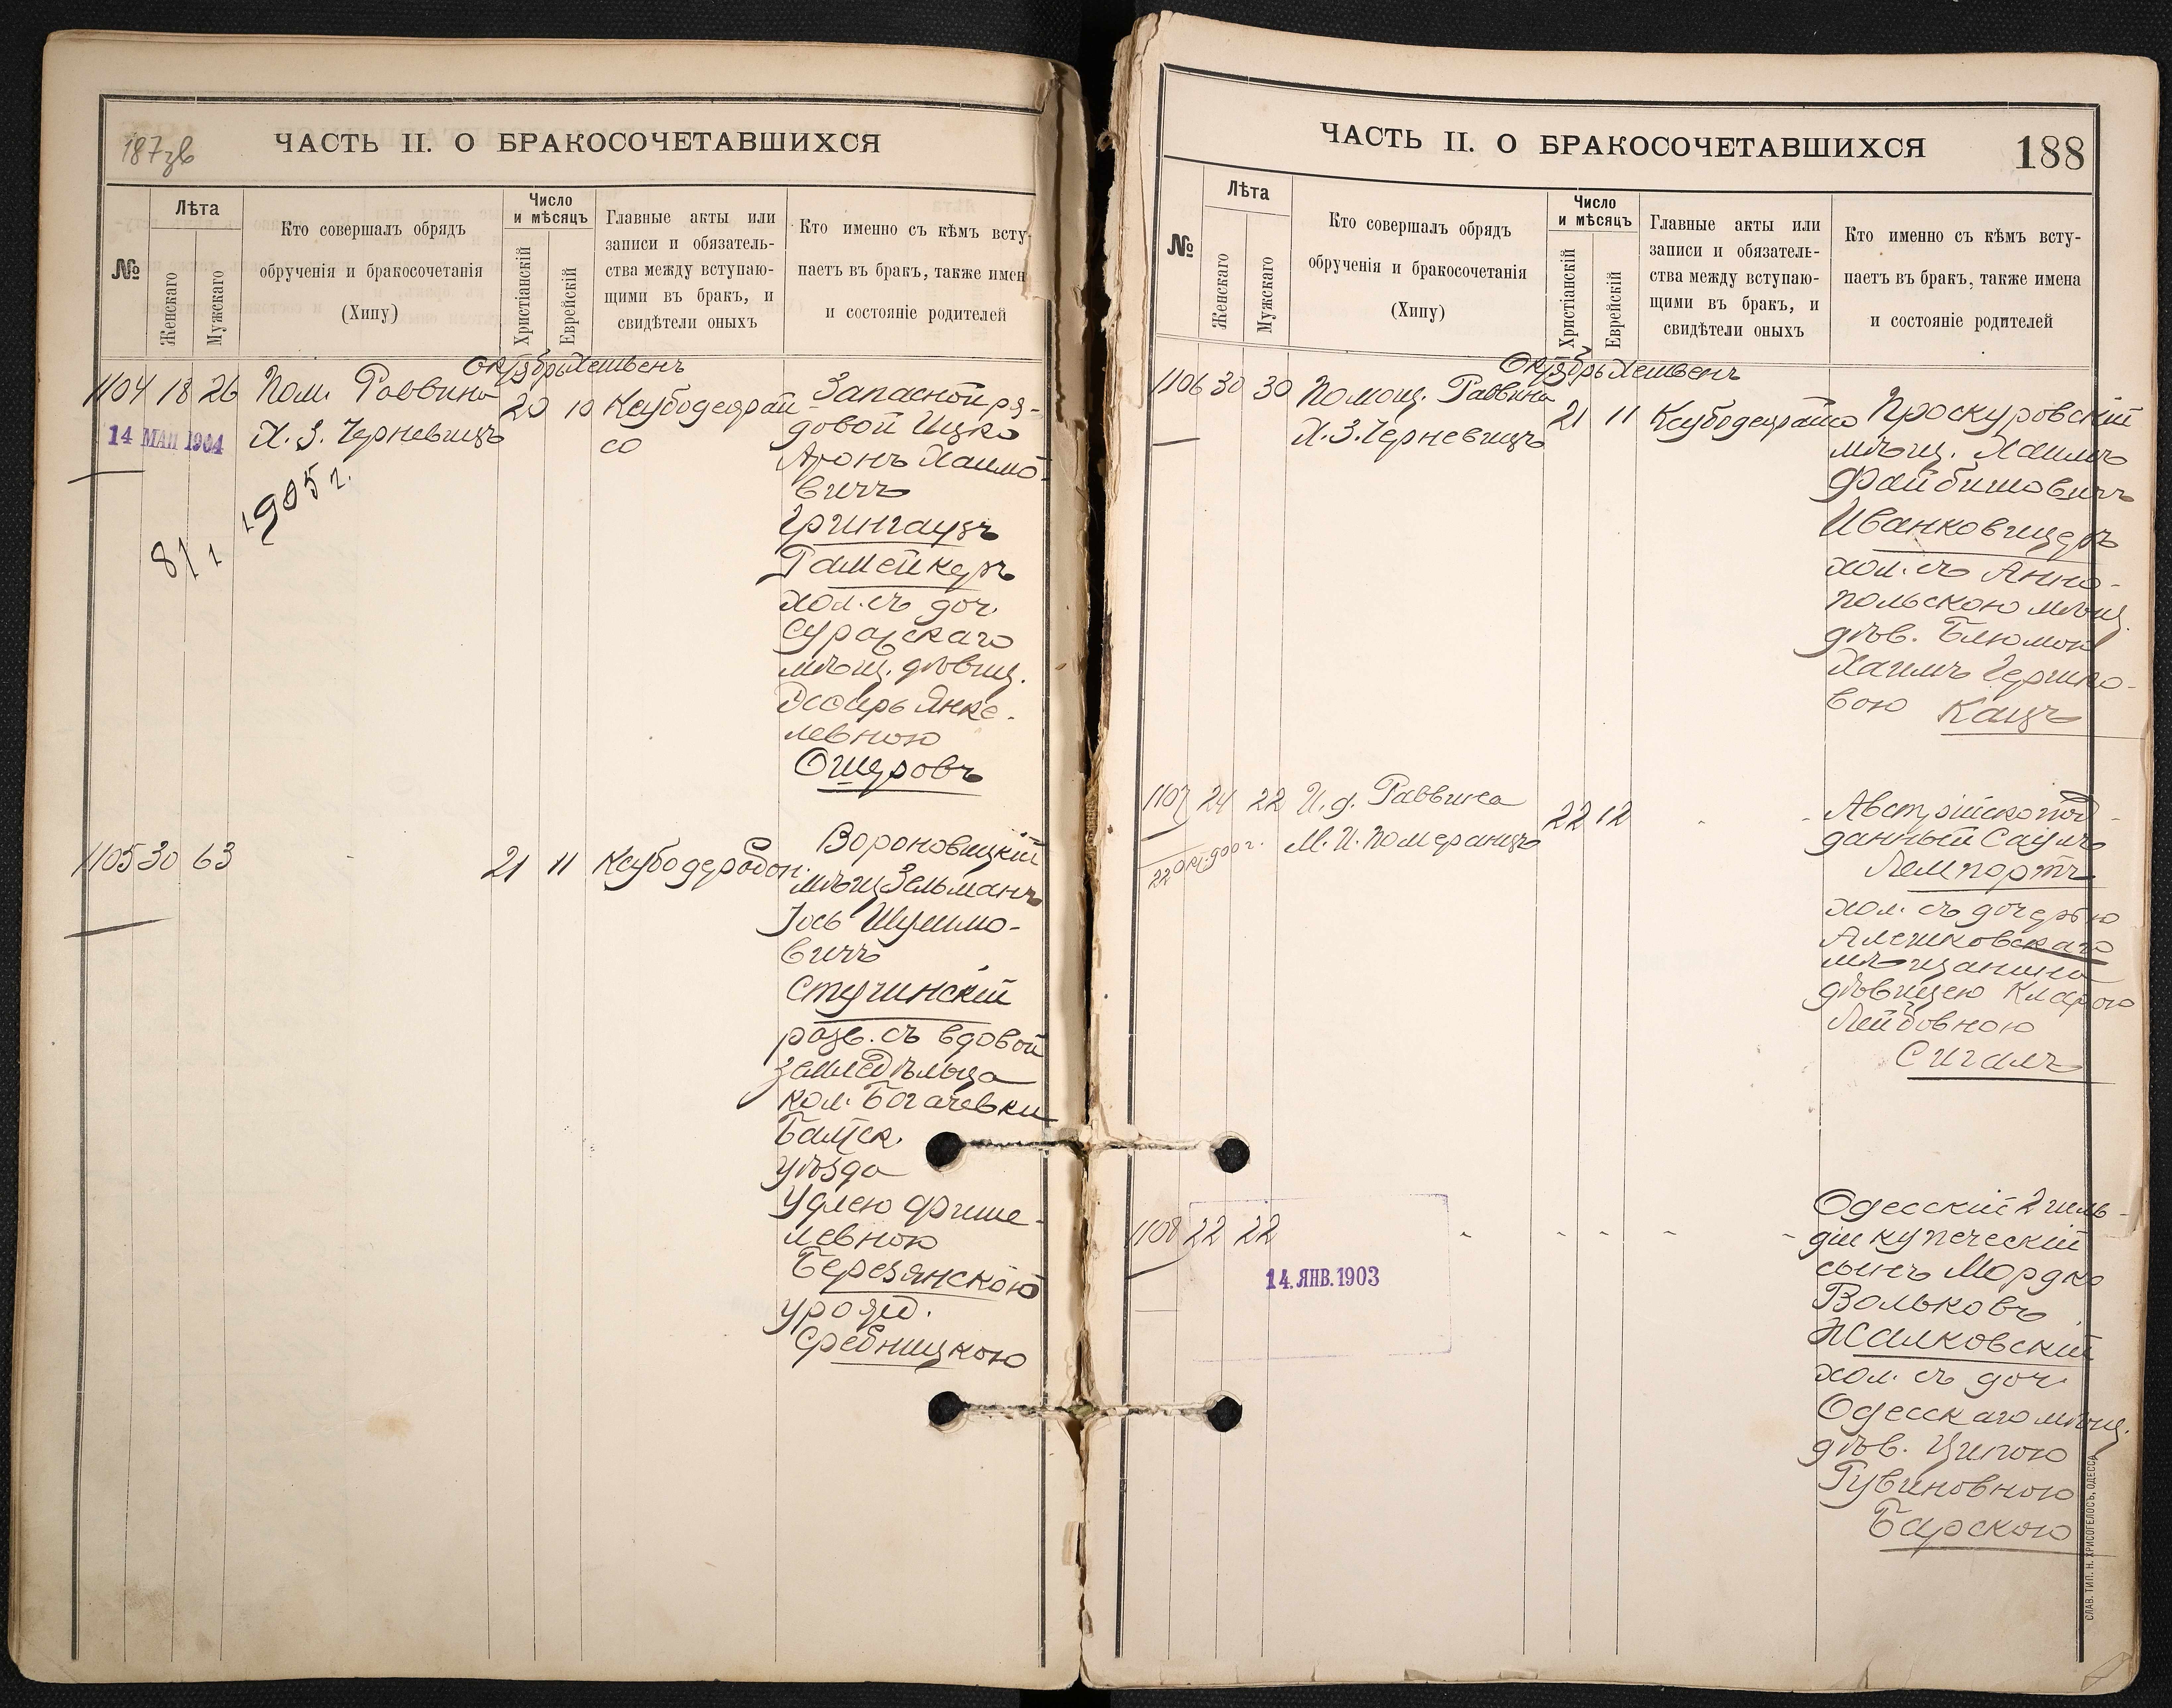 187зв
ЧАСТЬ II. О БРАКОСОЧЕТАВШИХСЯ
№
Лѣта
Женскаго
Мужскаго
Кто совершалъ обрядъ
обрученія и бракосочетанія
(Хипу)
Число
и мѣсяцъ
Христіанскій
Еврейскій
Главные акты или
записи и обязатель-
ства между вступаю-
щими въ бракъ, и
свидѣтели оныхъ
Кто именно съ кѣмъ всту-
паетъ въ бракъ, также имен
и состояніе родителей
Октябрь Хешвенъ
1104 18 26 Пом. Раввина 20 10 Ксубодецрай
со
14 МАЙ 1904
Х. З. Черневицъ
1905 г.
8/1
Запасной ря-
довой Ицко
Аронъ Хаимо-
вичъ
Грингаузъ
Рамейкеръ
хол. съ доч.
Суражскаго
мѣщ. дѣвиц.
Эсѳирь Янке-
левною
Ошеровъ
1105 30 63 21 11
Вороновицкій
мѣщ Зельманъ
Іось Шулимо-
вичъ
Стучинскій
разв. съ вдовой
земледѣльца
кол. Богачевки
Балтск.
уѣзда
Удлею Фише-
левною
Березянскою
урожд.
Сребницкою
ЧАСТЬ II. О БРАКОСОЧЕТАВШИХСЯ
188
№
Лѣта
Женскаго
Мужскаго
Кто совершалъ обрядъ
обрученія и бракосочетанія
(Хипу)
Число
и мѣсяцъ
Христіанскій
Еврейскій
Главные акты или
записи и обязатель-
ства между вступаю-
щими въ бракъ, и
свидѣтели оныхъ
Кто именно съ кѣмъ всту-
паетъ въ бракъ, также имена
и состояніе родителей
Октябрь Хешвенъ
1106 30 30 Помощ. Раввина 21 11
Х. З. Черневицъ
Проскуровскій
мѣщ. Хаимъ
Файбишовичъ
Иванковицеръ
хол. съ Анно-
польскою мѣщ.
дѣв. Блюмой
Хаимъ Гершко-
вою Кацъ
1107 24 22 И. д. Раввина 22 12
М. И. Померанцъ
22 окт. 900 г.
Австрійскопод-
данный Саулъ
Лемпортъ
хол. съ дочерью
Алешковскаго
мѣщанина
дѣвицею Кларою
Лейбовною
Сигалъ
1108 22 22
14. ЯНВ. 1903
Одесскій 2 гиль-
діи купеческій
сынъ Мордко
Вольковъ
Жалковскій
хол. съ доч.
Одесскаго мѣщ.
дѣв. Ципою
Рувиновною
Барскою
СЛАВ. ТИП. Н. ХРИСОГЕЛОСЪ, ОДЕССА